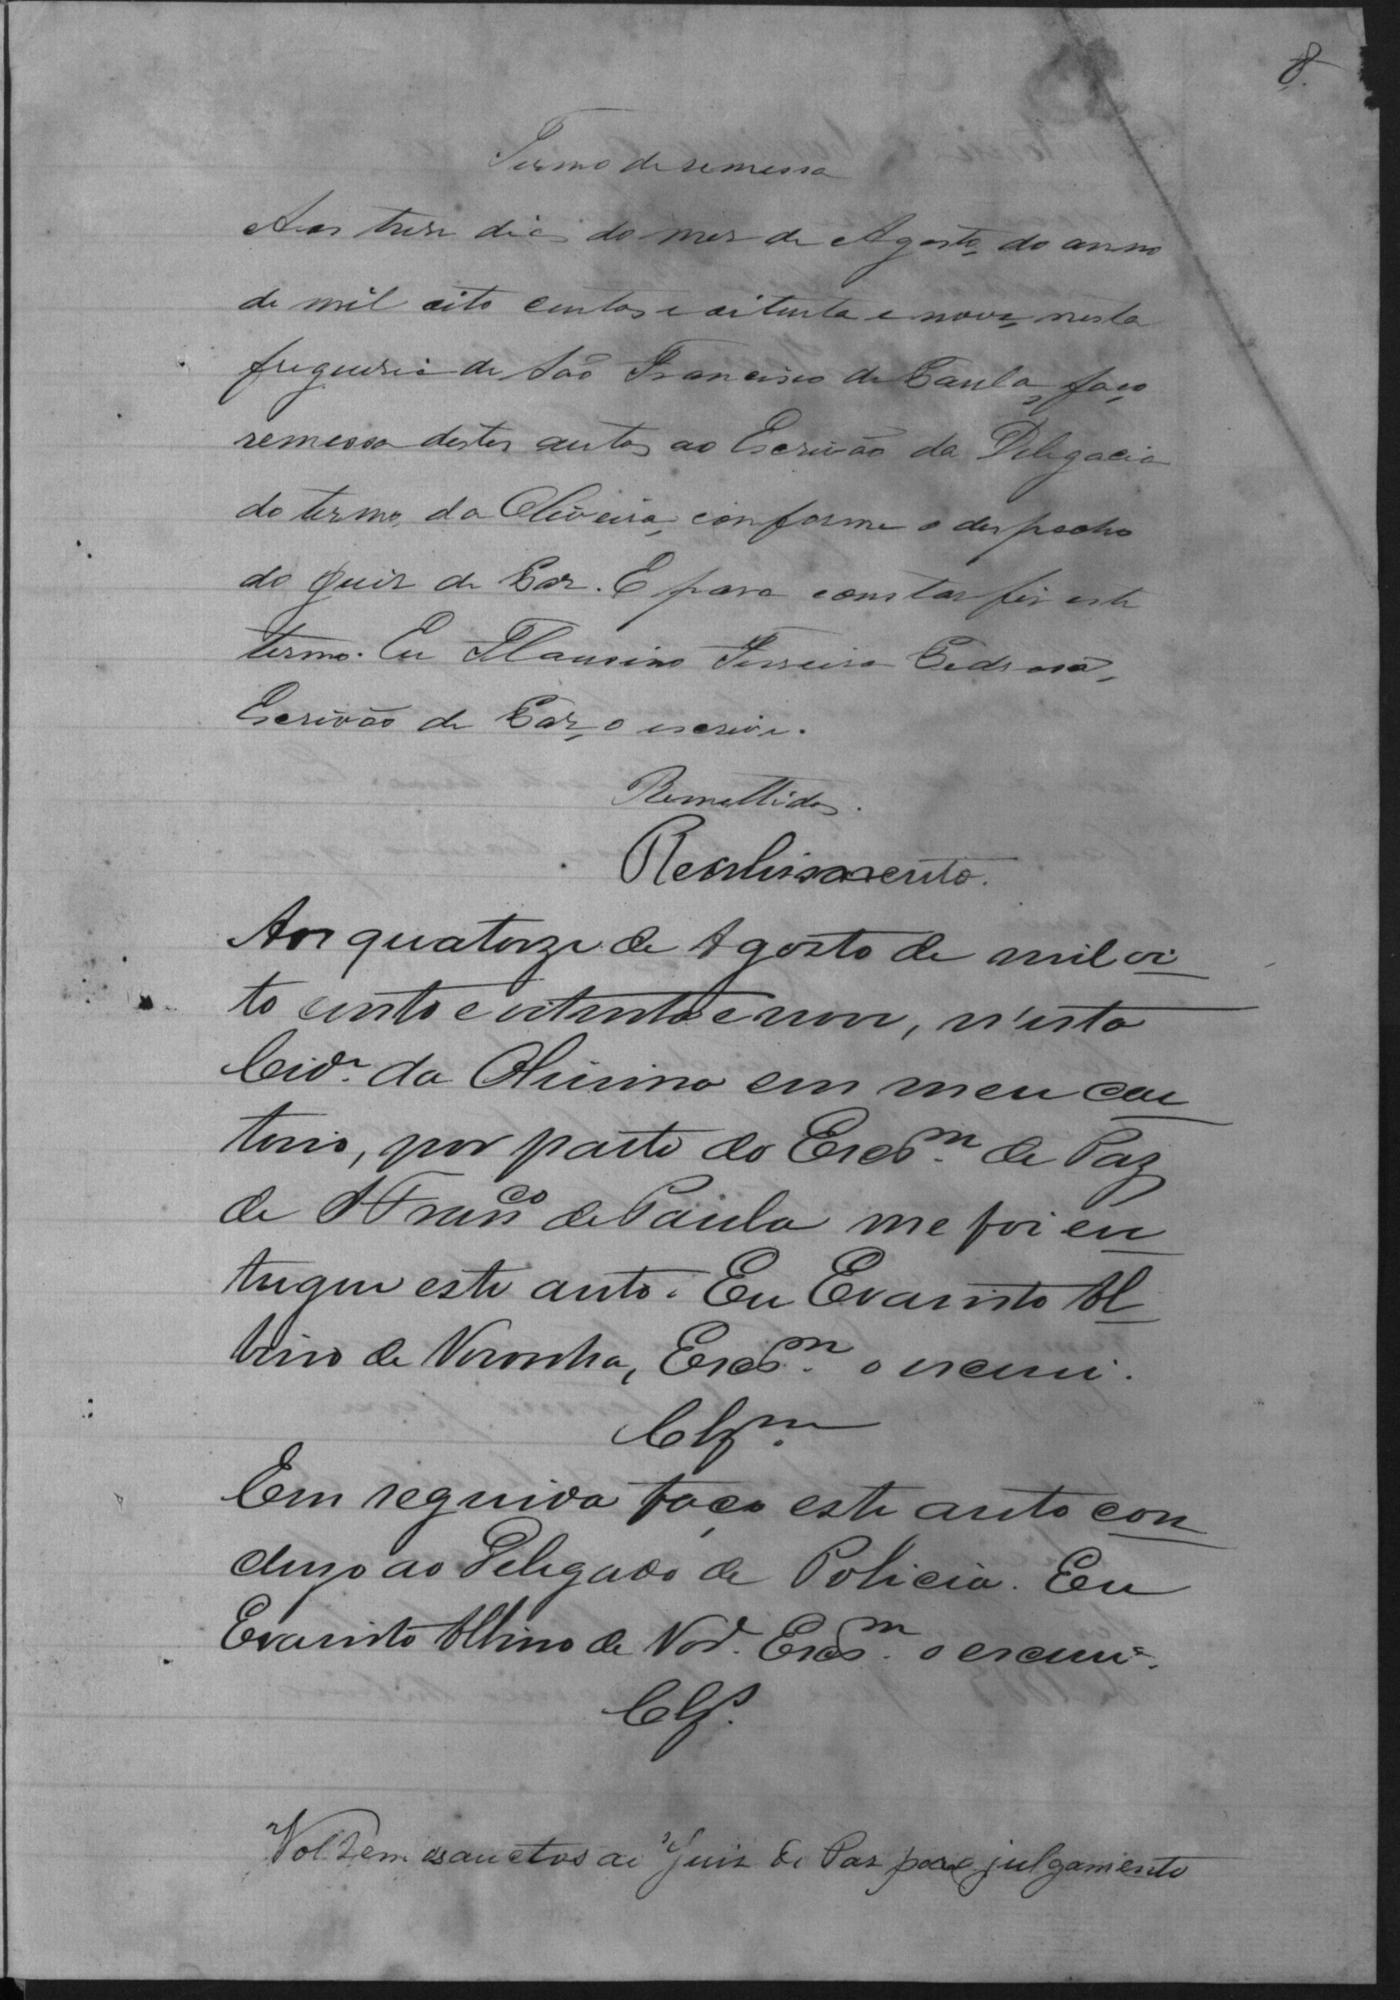 8.
Termo de remessa
Aos tres dias do mes de Agosto, do anno
de mil oito centos e oitenta e nove, nesta
freguesia de São Francisco de Paula, faço
remessa destes autos ao Escrivão da Delegacia
do termo da Oliveira, conforme o despacho
do Juiz de Paz. E para constar fiz este
termo. Eu Flausino Ferreira Pedrosa,
Escrivão de Paz, o escrevi.
Remettidos.
Recebimento.
Aos quatorze de Agosto de mil oi
to cento e oitenta e nove, n'esta
Cidᵉ. da Oliveira em meu car
torio, por parte do Escrᵐ. de Paz
de S Francᶜᵒ de Paula me foi en
tregue este auto. Eu Evaristo Al
bino de Noronha, Escrᵐ. o escrevi.
Clzᵐ.
Em seguida faço este auto con
cluzo ao Delegado de Policia. Eu
Evaristo Albino de Norᵃ. Escrᵐ. o escrevi.
Clzˢ.
Voltem os auctos ao Juiz de Paz para julgamento